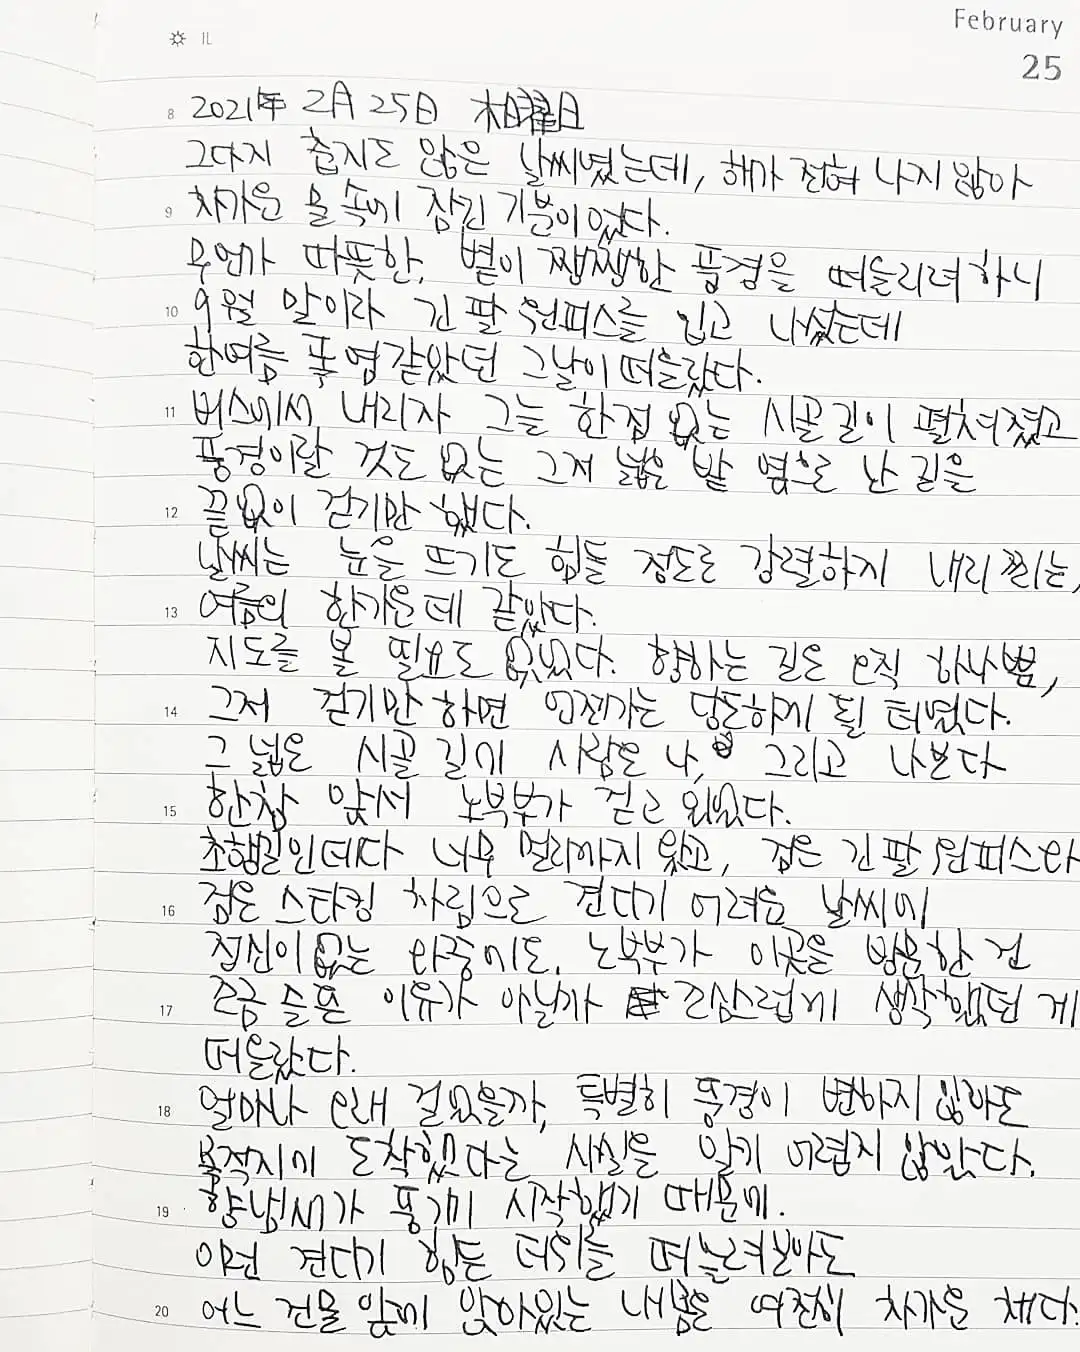 February
25
IL
8 2021年 2月 25日 木曜日
그다지 춥지도 않은 날씨였는데, 해가 전혀 나지 않아
9 차가운 물 속에 잠긴 기분이었다.
무언가 따뜻한, 볕이 쨍쨍한 풍경을 떠올리려 하니
10 9월 말이라 긴 팔 원피스를 입고 나섰는데
한여름 폭염같았던 그날이 떠올랐다.
11 버스에서 내리자 그늘 한 점 없는 시골 길이 펼쳐졌고
풍경이랄 것도 없는 그저 넓은 밭 옆으로 난 길을
12 끝없이 걷기만 했다.
날씨는 눈을 뜨기도 힘들 정도로 강렬하지 내리찌는,
13 여름의 한가운데 같았다.
지도를 볼 필요도 없었다. 향하는 길은 오직 하나뿐,
14 그저 걷기만 하면 언젠가는 당도하게 될 터였다.
그 넓은 시골 길에 사람은 나, 그리고 나보다
15 한참 앞서 노부부가 걷고 있었다.
초행길인데다 너무 멀리까지 왔고, 검은 긴 팔 원피스라
16 검은 스타킹 차림으로 견디기 어려운 날씨에
정신이 없는 와중에도, 노부부가 이곳을 방문한 건
17 조금 슬픈 이유가 아닐까 조심스럽게 생각했던 게
떠올랐다.
18 얼마나 오래 걸었을까, 특별히 풍경이 변하지 않아도
목적지에 도착했다는 사실을 알기 어렵지 않았다.
19 향 냄새가 풍기기 시작했기 때문에.
이런 견디기 힘든 더위를 떠올려보아도
20 어느 건물 앞에 앉아있는 내 몸은 여전히 차가운 채다.